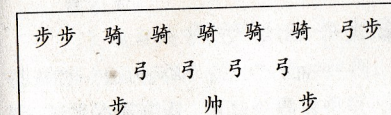 步步 骑 骑 骑 骑 骑 弓步
弓 弓 弓 弓
步 帅 步